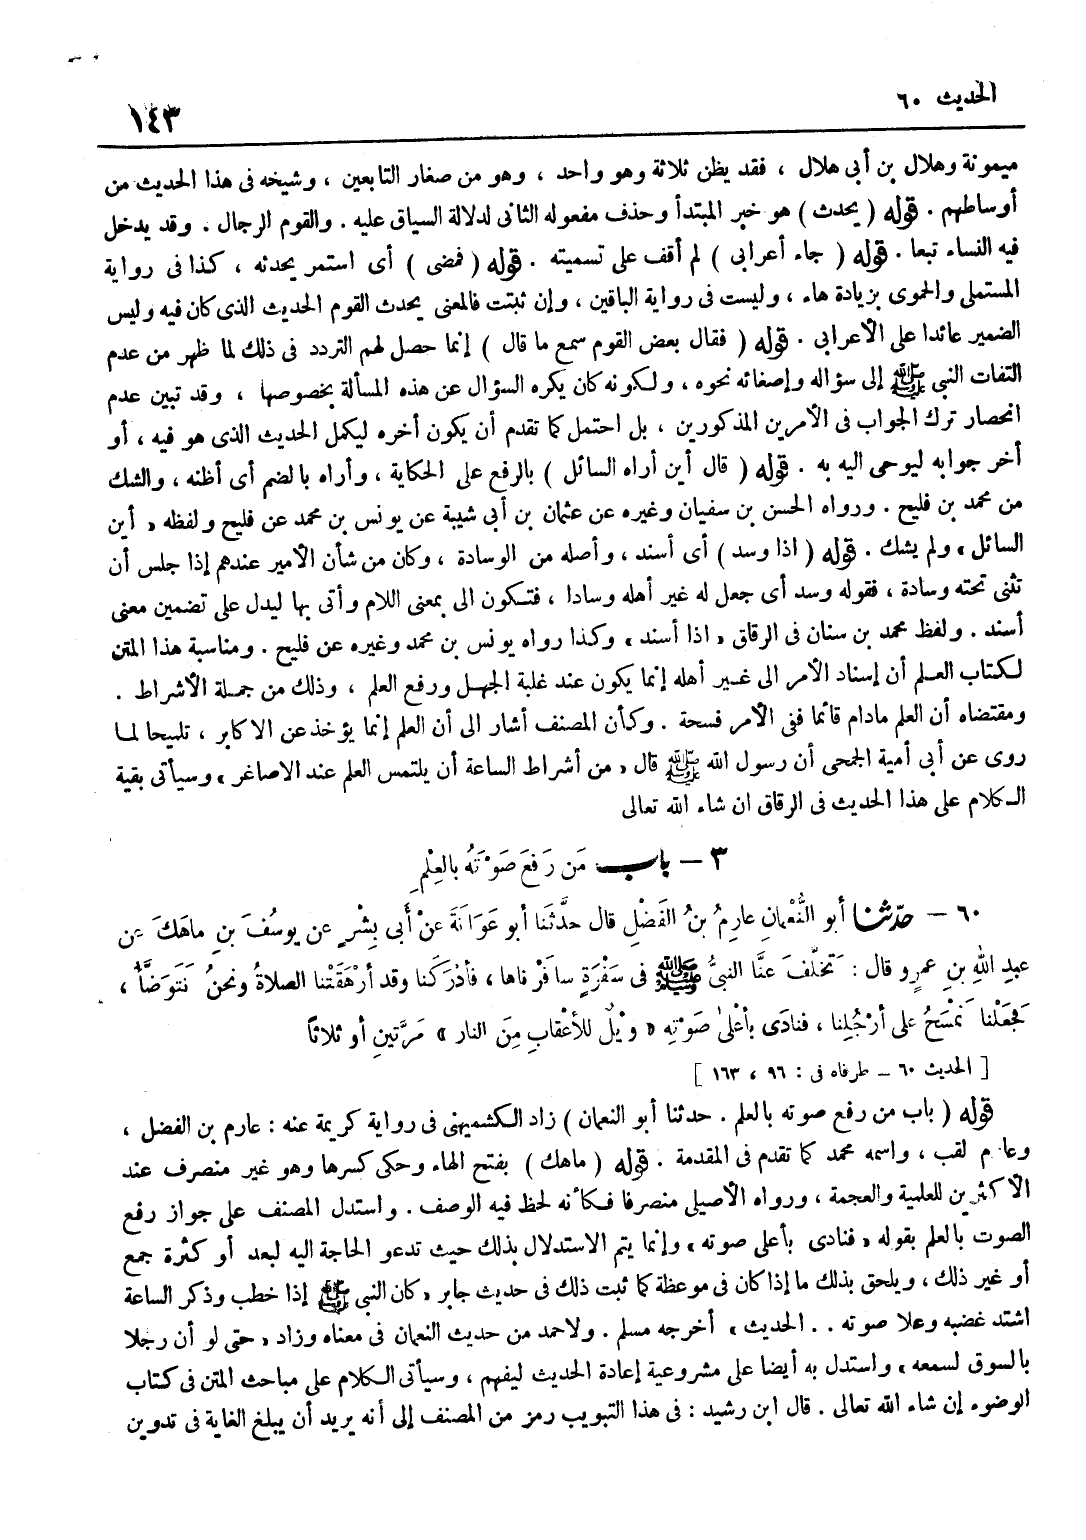 الحديث ٦٠
١٤٣
ميمونة وهلال بن أبى هلال ، فقد يظن ثلاثة وهو واحد ، وهو من صغار التابعين ، وشيخه فى هذا الحديث من
أوساطهم . قوله ( يحدث ) هو خبر المبتدأ وحذف مفعوله الثانى لدلالة السياق عليه . والقوم الرجال . وقد يدخل
فيه النساء تبعا . قوله ( جاء أعرابى ) لم أقف على تسميته . قوله ( فمضى ) أى استمر يحدثه ، كذا فى رواية
المستملى والحموى بزيادة هاء ، وليست فى رواية الباقين ، وإن ثبتت فالمعنى يحدث القوم الحديث الذى كان فيه وليس
الضمير عائدا على الأعرابى . قوله ( فقال بعض القوم سمع ما قال ) إنما حصل لهم التردد فى ذلك لما ظهر من عدم
التفات النبى ﷺ إلى سؤاله وإصغائه نحوه ، ولكونه كان يكره السؤال عن هذه المسألة بخصوصها ، وقد تبين عدم
انحصار ترك الجواب فى الأمرين المذكورين ، بل احتمل كما تقدم أن يكون أخره ليكمل الحديث الذى هو فيه ، أو
أخر جوابه ليوحى اليه به . قوله ( قال أين أراه السائل ) بالرفع على الحكاية ، وأراه بالضم أى أظنه ، والشك
من محمد بن فليح . ورواه الحسن بن سفيان وغيره عن عثمان بن أبى شيبة عن يونس بن محمد عن فليح ولفظه « أين
السائل » ولم يشك . قوله ( اذا وسد ) أى أسند ، وأصله من الوسادة ، وكان من شأن الأمير عندهم إذا جلس أن
تثنى تحته وسادة ، فقوله وسد أى جعل له غير أهله وسادا ، فتكون الى بمعنى اللام وأتى بها ليدل على تضمين معنى
أسند . ولفظ محمد بن سنان فى الرقاق « اذا أسند » وكذا رواه يونس بن محمد وغيره عن فليح . ومناسبة هذا المتن
لكتاب العلم أن إسناد الأمر الى غير أهله إنما يكون عند غلبة الجهل ورفع العلم ، وذلك من جملة الأشراط .
ومقتضاه أن العلم مادام قائما ففى الأمر فسحة . وكأن المصنف أشار الى أن العلم إنما يؤخذ عن الاكابر ، تلميحا لما
روى عن أبى أمية الجمحى أن رسول الله ﷺ قال « من أشراط الساعة أن يلتمس العلم عند الاصاغر » وسيأتى بقية
الكلام على هذا الحديث فى الرقاق ان شاء الله تعالى
٣ – باب مَن رَفَعَ صَوْتَهُ بالعِلْمِ
٦٠ – حدّثنا أبو النُّعْمانِ عارِمُ بنُ الفَضْلِ قال حدَّثَنا أبو عَوَانَةَ عَنْ أَبى بِشْرٍ عن يوسُفَ بنِ ماهَكَ عن
عبدِ اللهِ بنِ عمرٍو قال : تَخلَّفَ عنَّا النبىُّ ﷺ فى سَفْرَةٍ سافَرْناها ، فأدْرَكَنا وقد أرْهَقَتْنا الصلاةُ ونحنُ نَتَوَضَّأُ ،
فجَعَلْنا نَمْسَحُ على أرْجُلِنا ، فنادَى بأعْلىٰ صَوْتِهِ « وَيْلٌ للأَعْقابِ مِنَ النار » مَرَّتينِ أو ثلاثًا
[ الحديث ٦٠ – طرفاه فى : ٩٦ ، ١٦٣ ]
قوله ( باب من رفع صوته بالعلم . حدثنا أبو النعمان ) زاد الكشميهنى فى رواية كريمة عنه : عارم بن الفضل ،
وعارم لقب ، واسمه محمد كما تقدم فى المقدمة . قوله ( ماهك ) بفتح الهاء وحكى كسرها وهو غير منصرف عند
الأكثرين للعلمية والعجمة ، ورواه الأصيلى منصرفا فكأنه لحظ فيه الوصف . واستدل المصنف على جواز رفع
الصوت بالعلم بقوله « فنادى بأعلى صوته » وإنما يتم الاستدلال بذلك حيث تدعو الحاجة اليه لبعد أو كثرة جمع
أو غير ذلك ، ويلحق بذلك ما إذا كان فى موعظة كما ثبت ذلك فى حديث جابر « كان النبى ﷺ إذا خطب وذكر الساعة
اشتد غضبه وعلا صوته . . الحديث » أخرجه مسلم . ولاحمد من حديث النعمان فى معناه وزاد « حتى لو أن رجلا
بالسوق لسمعه » واستدل به أيضا على مشروعية إعادة الحديث ليفهم ، وسيأتى الكلام على مباحث المتن فى كتاب
الوضوء إن شاء الله تعالى . قال ابن رشيد : فى هذا التبويب رمز من المصنف إلى أنه يريد أن يبلغ الغاية فى تدوين